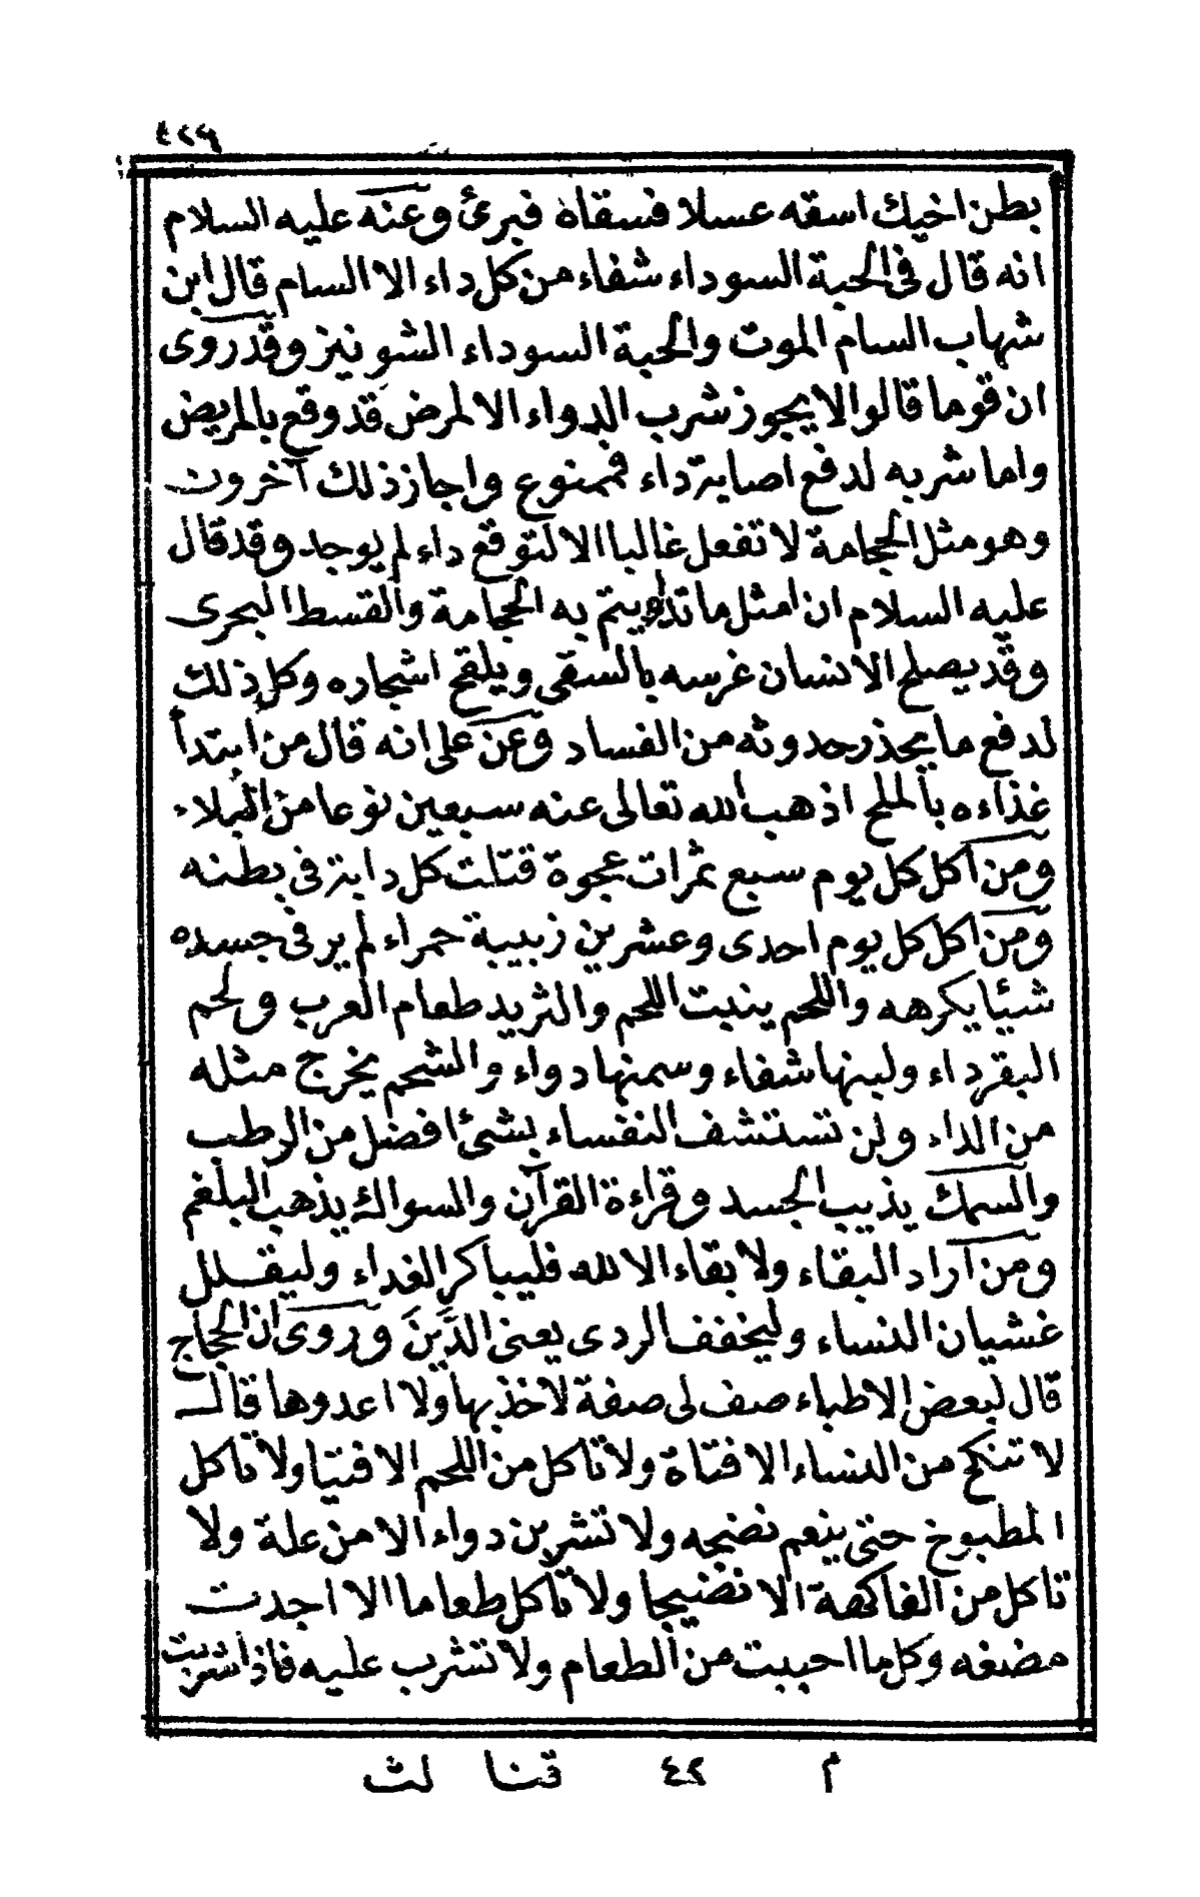 ٤٢٩
بطن اخيك اسقه عسلا فسقاه فبرئ وعنه عليه السلام
انه قال فى الحبة السوداء شفاء من كل داء الا السام قال ابن
شهاب السام الموت والحبة السوداء الشونيز وقد روى
ان قوما قالوا لا يجوز شرب الدواء الا لمرض قد وقع بالمريض
واما شربه لدفع اصابة داء فممنوع واجاز ذلك آخرون
وهو مثل الحجامة لا تفعل غالبا الا لتوقع داء لم يوجد وقد قال
عليه السلام ان امثل ما تداويتم به الحجامة والقسط البحرى
وقد يصلح الانسان غرسه بالسقى ويلقح اشجاره وكل ذلك
لدفع ما يحذر حدوثه من الفساد وعن على انه قال من ابتدأ
غذاءه بالملح اذهب الله تعالى عنه سبعين نوعا من البلاء
ومن اكل كل يوم سبع تمرات عجوة قتلت كل دابة فى بطنه
ومن اكل كل يوم احدى وعشرين زبيبة حمراء لم ير فى جسده
شيئا يكرهه واللحم ينبت اللحم والثريد طعام العرب ولحم
البقر داء ولبنها شفاء وسمنها دواء والشحم يخرج مثله
من الداء ولن تستشف النفساء بشئ افضل من الرطب
والسمك يذيب الجسد وقراءة القرآن والسواك يذهب البلغم
ومن آراد البقاء ولا بقاء الا لله فليباكر الغداء وليقلل
غشيان النساء وليخفف الردى يعنى الدَّينَ وروى ان الحجاج
قال لبعض الاطباء صف لى صفة لاخذ بها ولا اعدوها قال
لا تنكح من النساء الا فتاة ولا تاكل من اللحم الا فتيا ولا تاكل
المطبوخ حتى ينعم نضجه ولا تشربن دواء الا من علة ولا
تاكل من الفاكهة الا نضيجا ولا تاكل طعاما الا اجدت
مضغه وكل ما احببت من الطعام ولا تشرب عليه فاذا شربت
م ٤٢ قنا لث